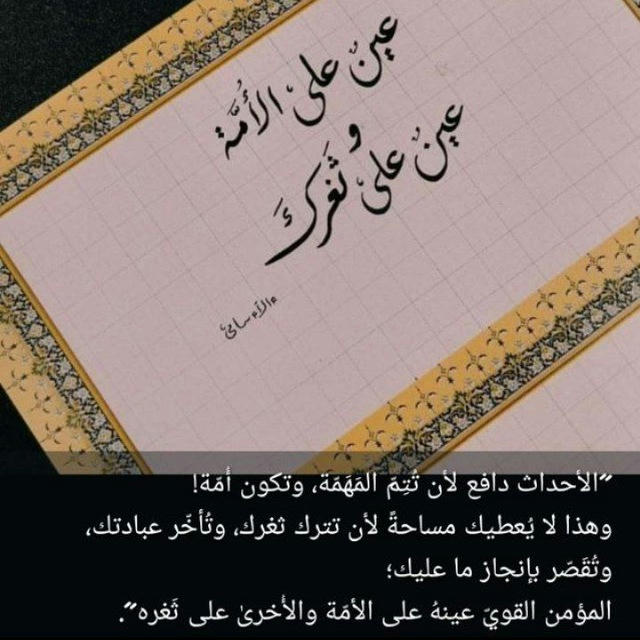 عين على الأُمَّة
و
عين على ثَغرِكَ
"الأحداث دافع لأن تُتِمّ المَهَمّة، وتكون أُمّة!
وهذا لا يُعطيك مساحةً لأن تترك ثغرك، وتُأخّر عبادتك،
وتُقَصّر بإنجاز ما عليك؛
المؤمن القويّ عينهُ على الأمّة والأُخرىٰ على ثَغره".